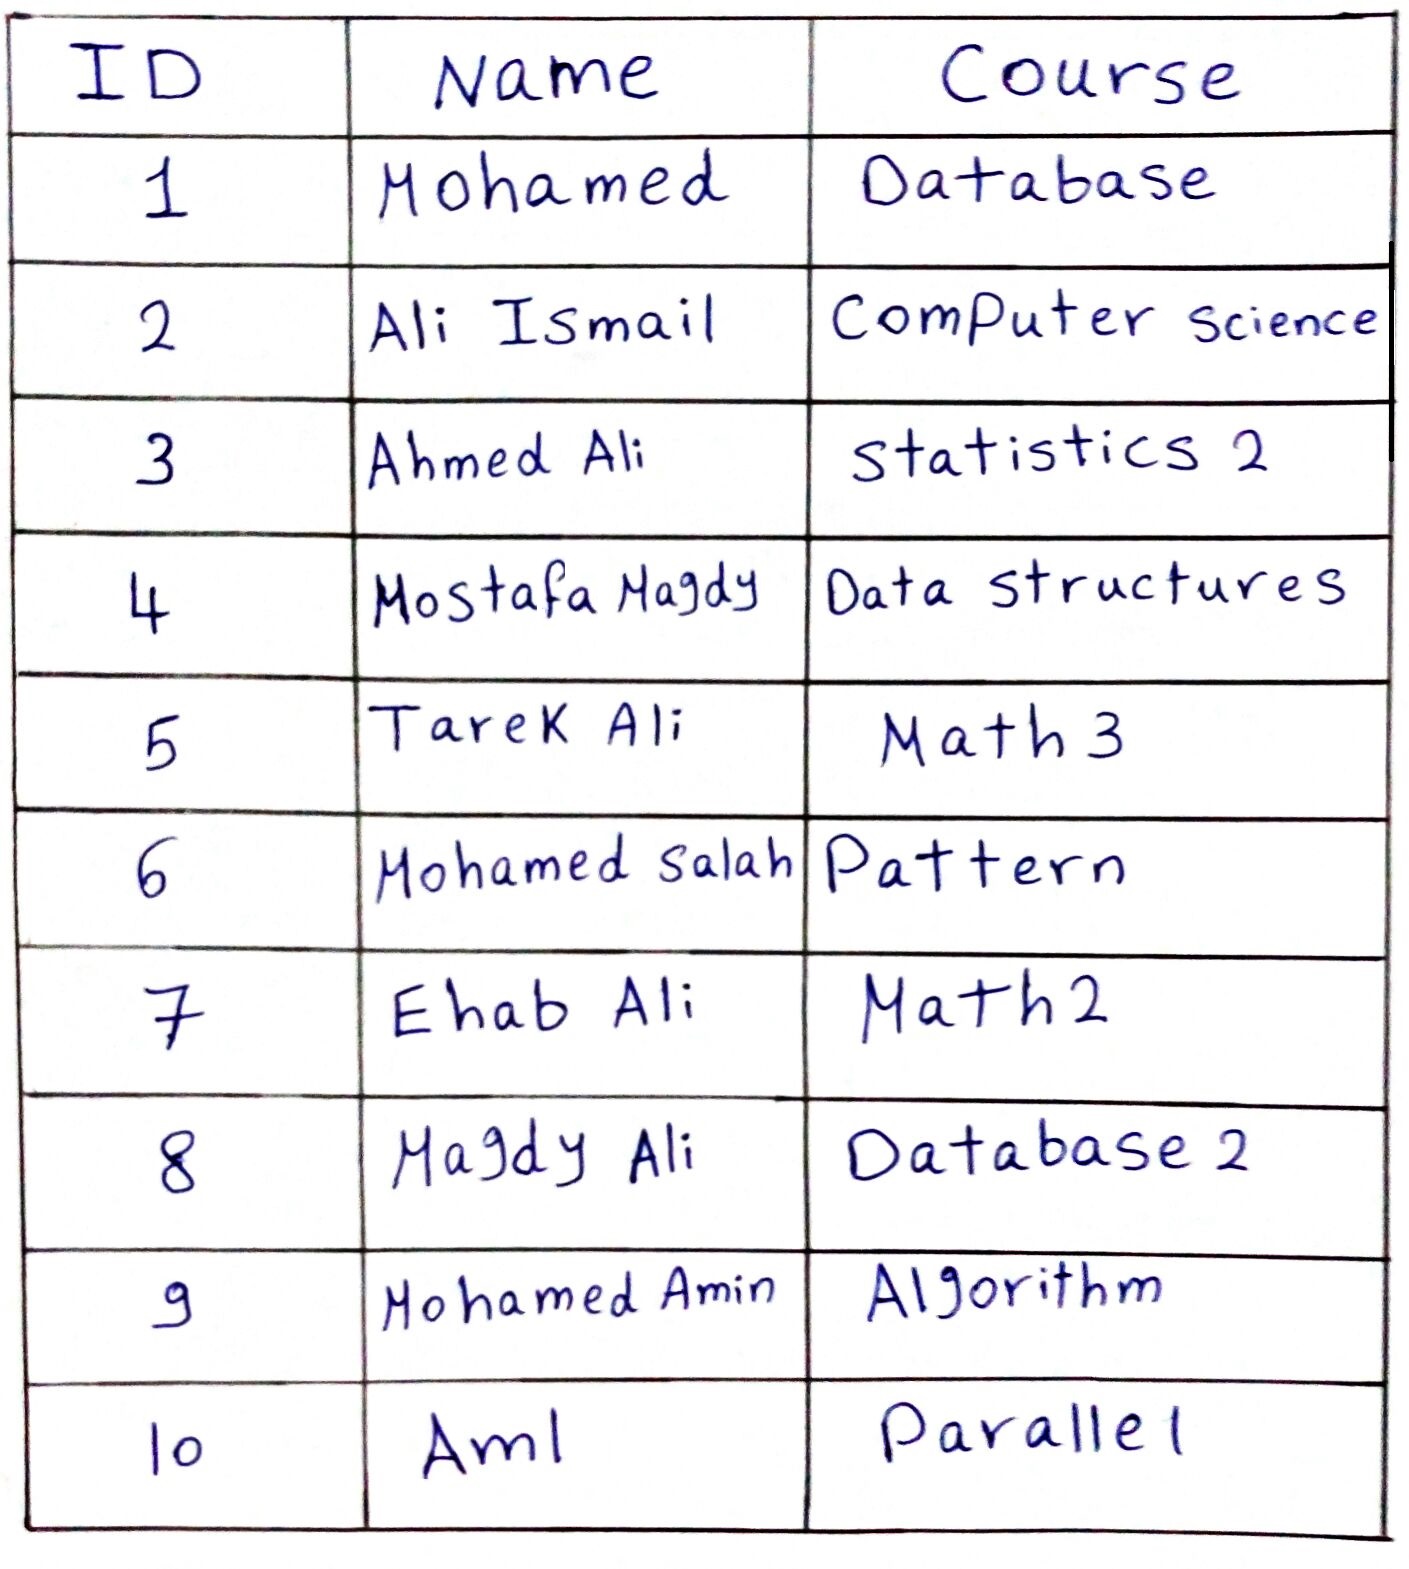 ID Name Course
1 Mohamed Database
2 Ali Ismail Computer science
3 Ahmed Ali statistics 2
4 Mostafa Magdy Data structures
5 Tarek Ali Math 3
6 Mohamed Salah Pattern
7 Ehab Ali Math 2
8 Magdy Ali Database 2
9 Mohamed Amin Algorithm
10 Aml Parallel